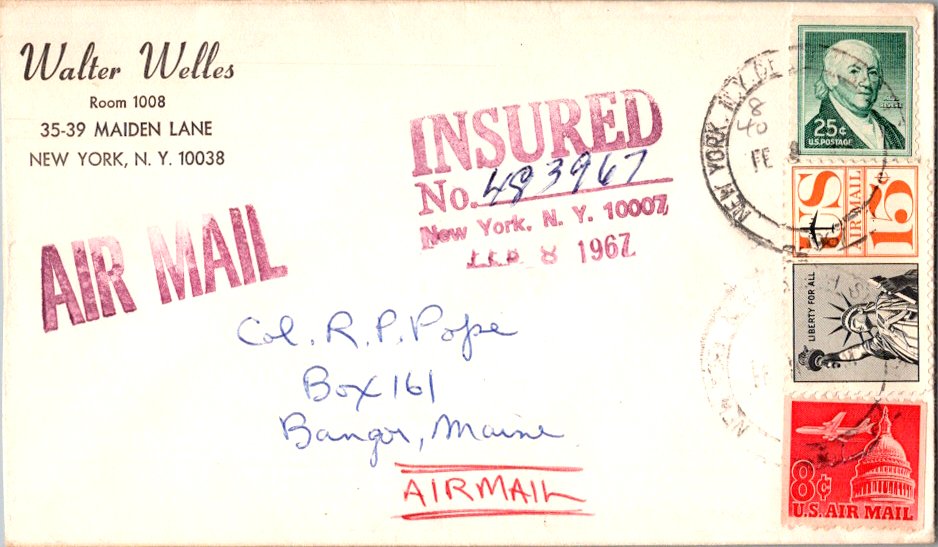 Walter Welles
Room 1008
35-39 MAIDEN LANE
NEW YORK, N. Y. 10038
AIR MAIL
INSURED
No. 483967
New York, N. Y. 10007
FEB 8 1967
Col. R. P. Pope
Box 161
Bangor, Maine
AIRMAIL
NEW YORK, N.Y.
FE
25¢
U.S. POSTAGE
US AIRMAIL 15¢
LIBERTY FOR ALL
8¢
U.S. AIR MAIL